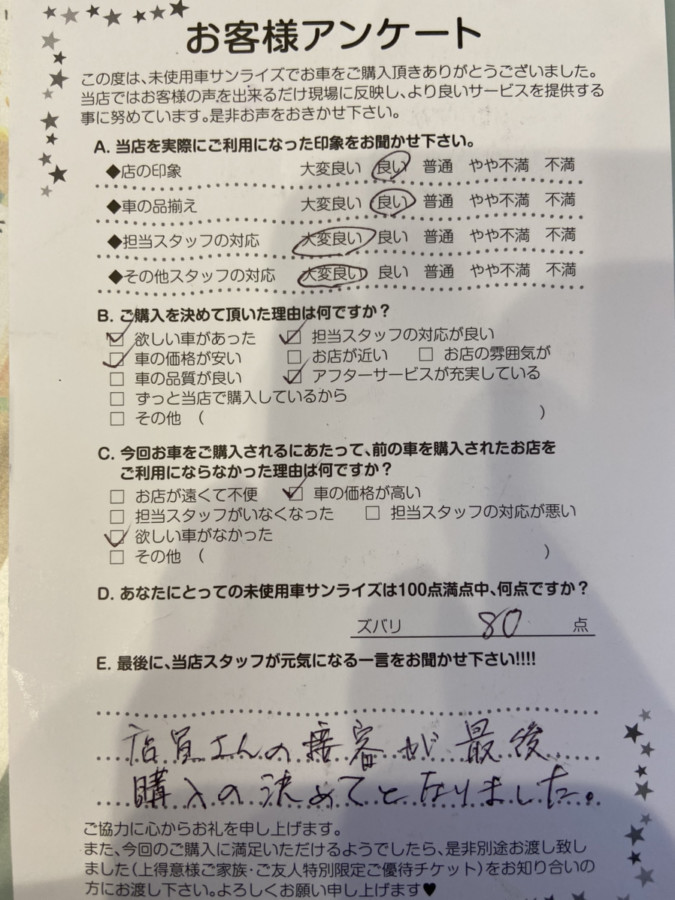 お客様アンケート
この度は、未使用車サンライズでお車をご購入頂きありがとうございました。
当店ではお客様の声を出来るだけ現場に反映し、より良いサービスを提供する
事に努めています。是非お声をおきかせ下さい。
A. 当店を実際にご利用になった印象をお聞かせ下さい。
◆店の印象 大変良い 良い 普通 やや不満 不満
◆車の品揃え 大変良い 良い 普通 やや不満 不満
◆担当スタッフの対応 大変良い 良い 普通 やや不満 不満
◆その他スタッフの対応 大変良い 良い 普通 やや不満 不満
B. ご購入を決めて頂いた理由は何ですか？
☑ 欲しい車があった ☑ 担当スタッフの対応が良い
☑ 車の価格が安い □ お店が近い □ お店の雰囲気が
□ 車の品質が良い ☑ アフターサービスが充実している
□ ずっと当店で購入しているから
□ その他 （ ）
C. 今回お車をご購入されるにあたって、前の車を購入されたお店を
ご利用にならなかった理由は何ですか？
□ お店が遠くて不便 ☑ 車の価格が高い
□ 担当スタッフがいなくなった □ 担当スタッフの対応が悪い
☑ 欲しい車がなかった
□ その他 （ ）
D. あなたにとっての未使用車サンライズは100点満点中、何点ですか？
ズバリ 80 点
E. 最後に、当店スタッフが元気になる一言をお聞かせ下さい!!!!
店員さんの接客が最後
購入の決めてとなりました。
ご協力に心からお礼を申し上げます。
また、今回のご購入に満足いただけるようでしたら、是非別途お渡し致し
ました（上得意様ご家族・ご友人特別限定ご優待チケット）をお知り合いの
方にお渡し下さい。よろしくお願い申し上げます♥